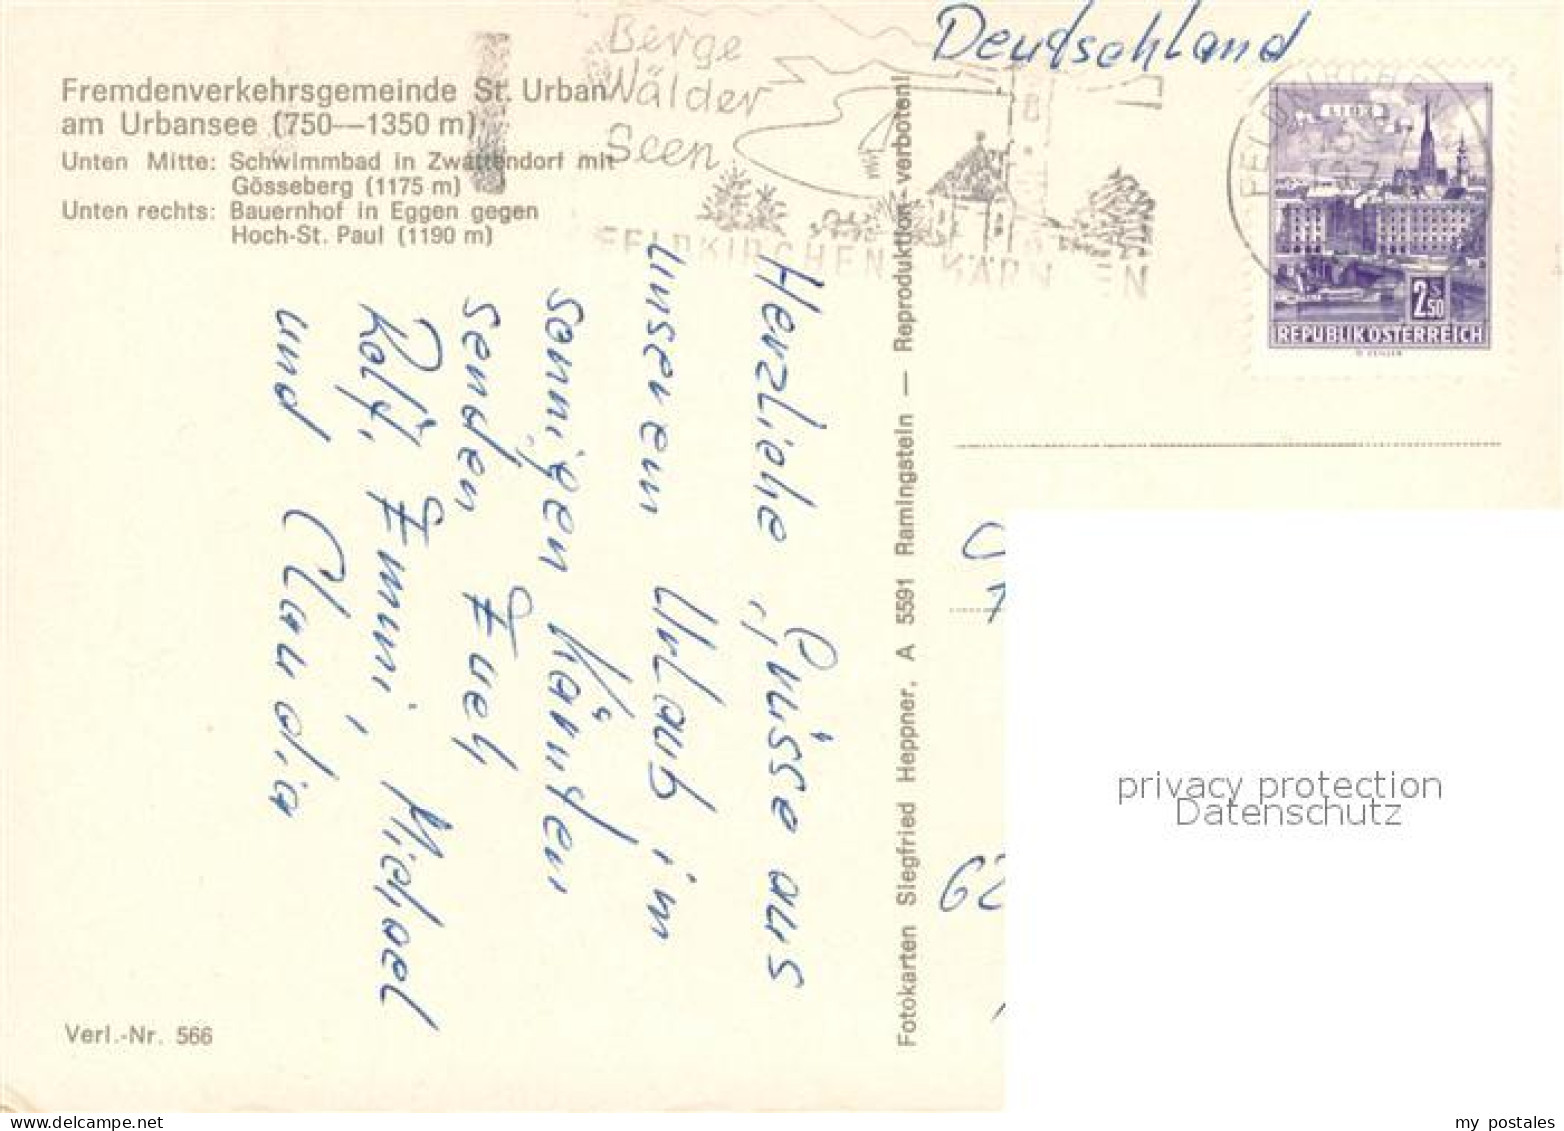 Deutschland
Fremdenverkehrsgemeinde St. Urban
am Urbansee (750—1350 m)
Unten Mitte: Schwimmbad in Zwattendorf mit
Gösseberg (1175 m)
Unten rechts: Bauernhof in Eggen gegen
Hoch-St. Paul (1190 m)
Berge
Wälder
Seen
FELDKIRCHEN KÄRNTEN
LINZ
2 S 50
REPUBLIK ÖSTERREICH
Herzliche Grüsse aus
unserem Urlaub im
sonnigen Kärnten
senden Euch
Rolf, Emmi, Michael
und Claudia
Fotokarten Siegfried Heppner, A 5591 Ramingstein — Reproduktion verboten!
62
privacy protection
Datenschutz
Verl.-Nr. 566
my postales